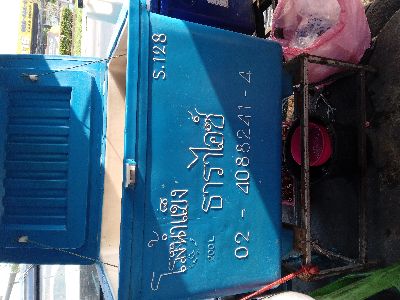 โรงน้ำแข็ง
S.128
200L
ธาราไอซ์
02 - 4088241-4